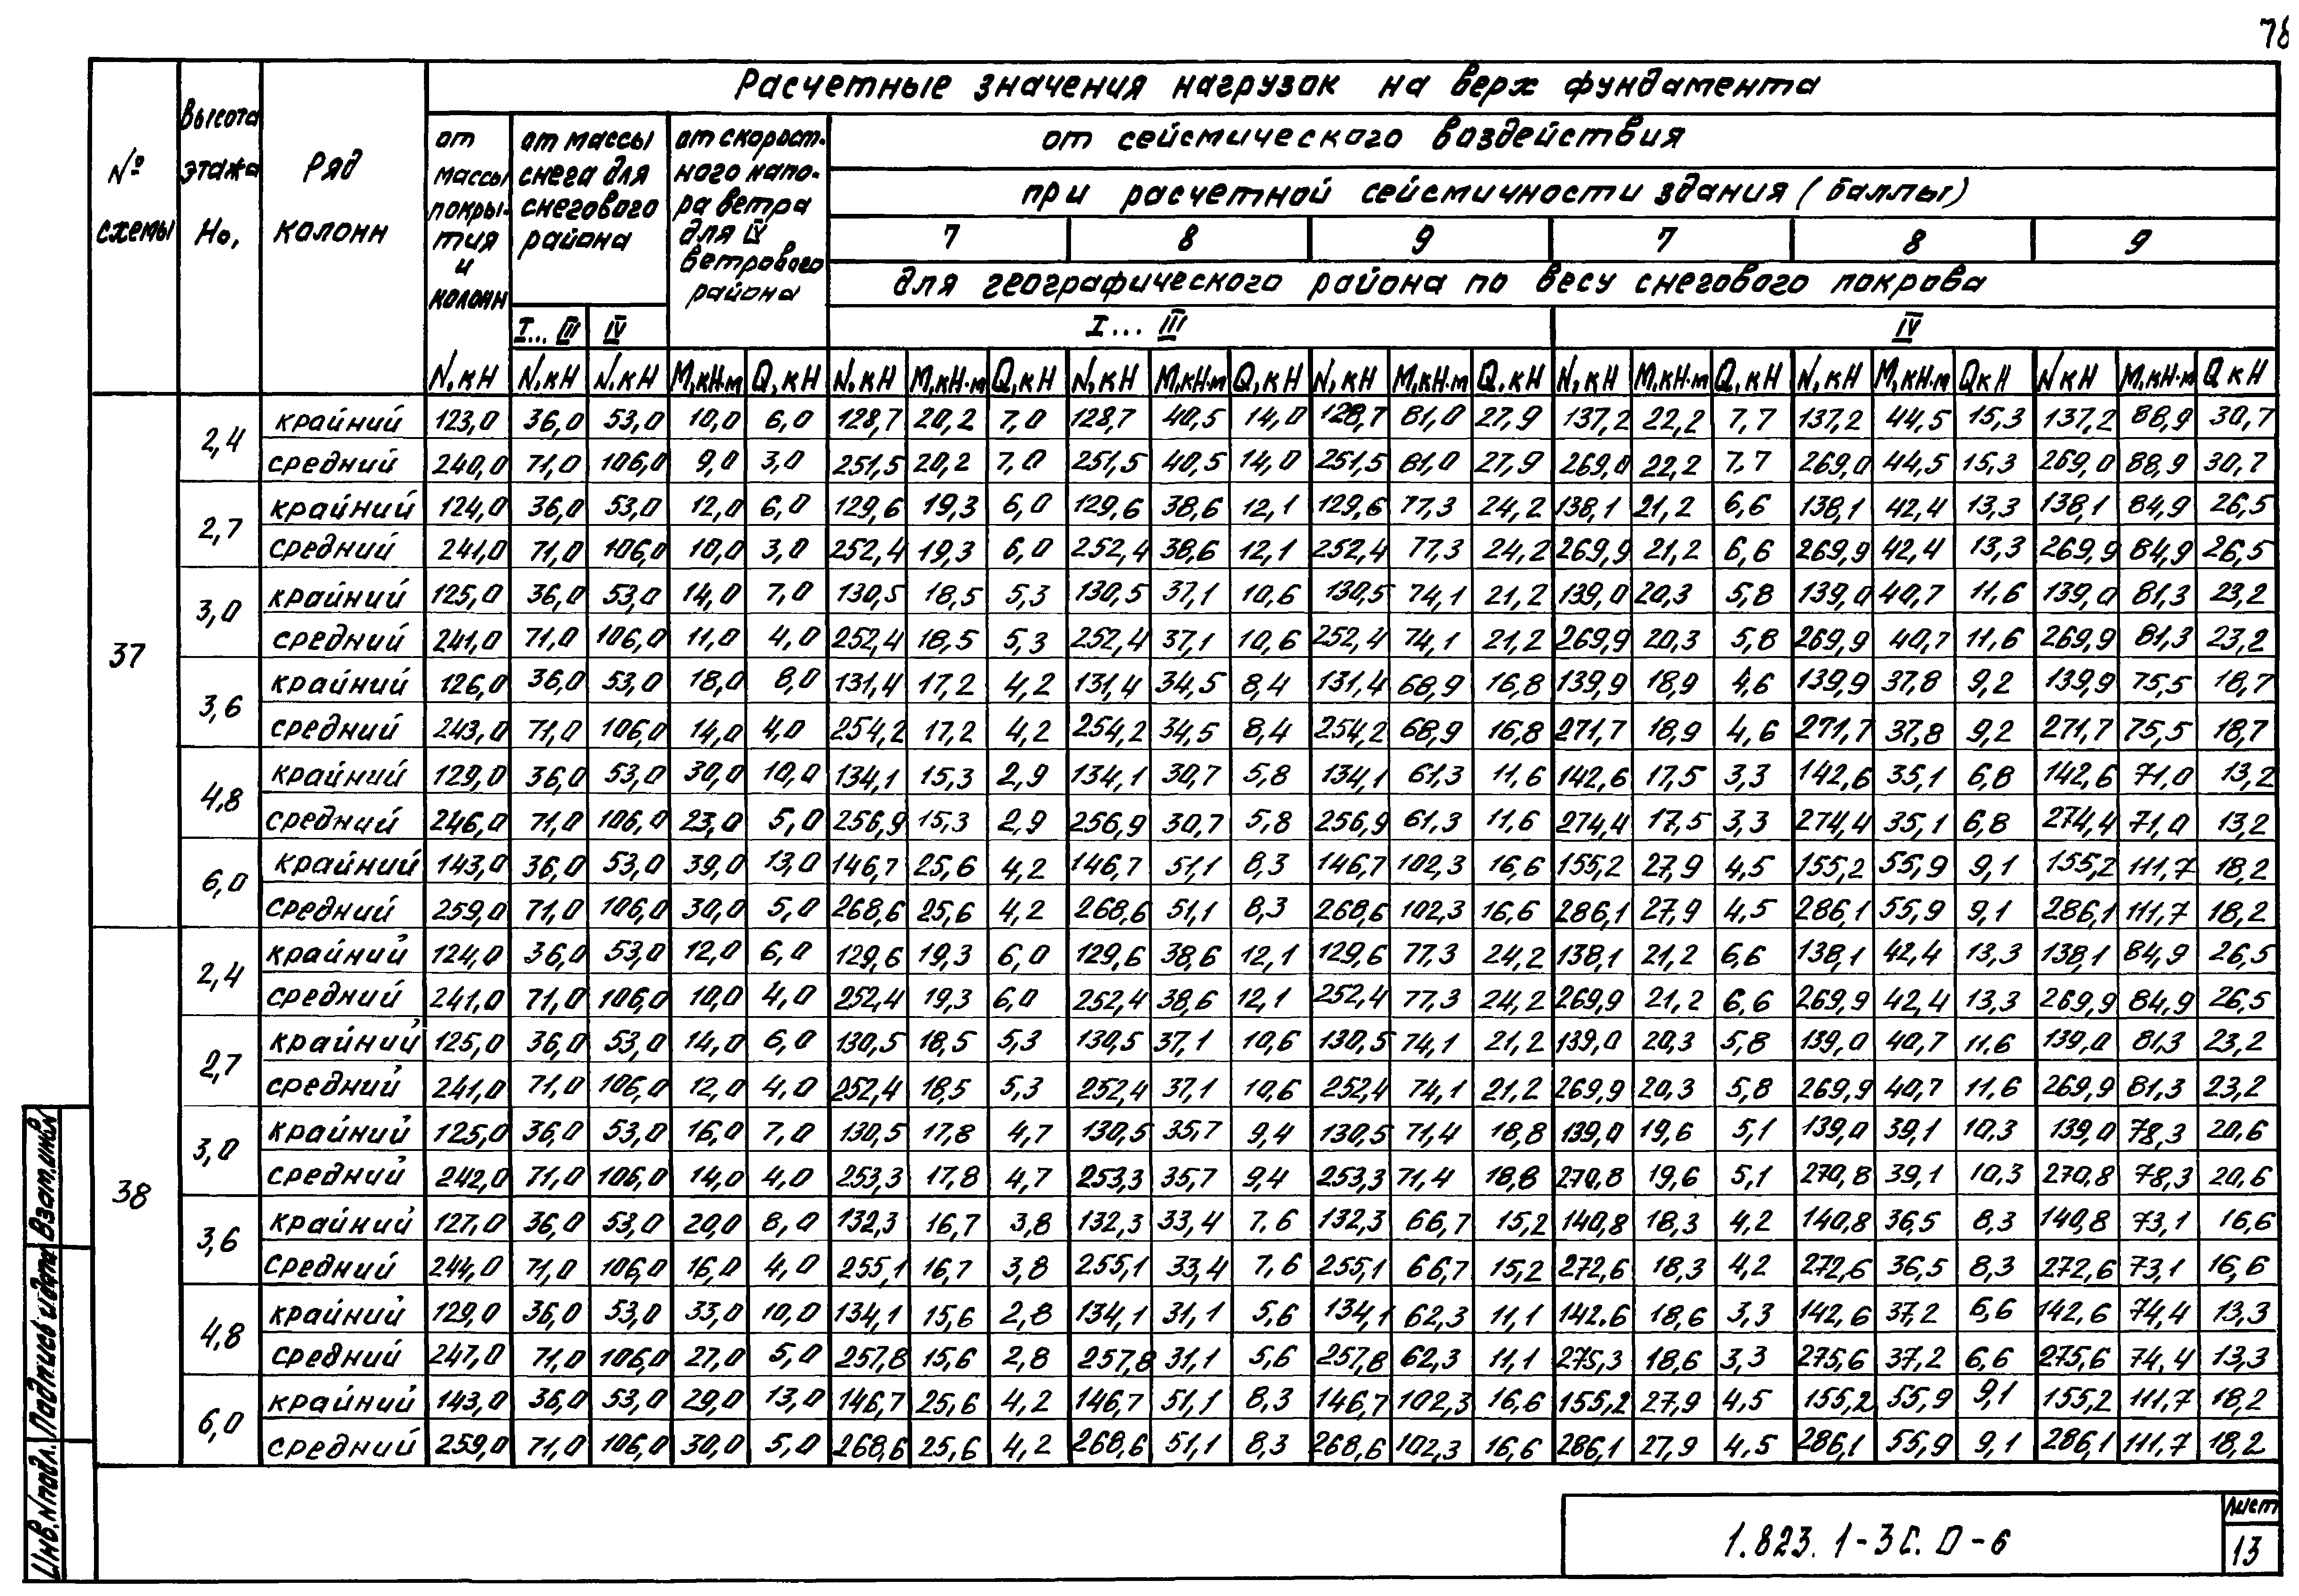 78
Расчетные значения нагрузок на верх фундамента
№ схемы
Высота этажа Но,
Ряд колонн
от массы покрытия и колонн
от массы снега для снегового района
от скоростного напора ветра для IV ветрового района
от сейсмического воздействия
при расчетной сейсмичности здания (баллы)
7 8 9 7 8 9
для географического района по весу снегового покрова
I... III IV I... III IV
N,кН N,кН N,кН M,кН·м Q,кН N,кН M,кН·м Q,кН N,кН M,кН·м Q,кН N,кН M,кН·м Q,кН N,кН M,кН·м Q,кН N,кН M,кН·м QкН NкН M,кН·м QкН
37
2,4 крайний 123,0 36,0 53,0 10,0 6,0 128,7 20,2 7,0 128,7 40,5 14,0 128,7 81,0 27,9 137,2 22,2 7,7 137,2 44,5 15,3 137,2 88,9 30,7
средний 240,0 71,0 106,0 9,0 3,0 251,5 20,2 7,0 251,5 40,5 14,0 251,5 81,0 27,9 269,0 22,2 7,7 269,0 44,5 15,3 269,0 88,9 30,7
2,7 крайний 124,0 36,0 53,0 12,0 6,0 129,6 19,3 6,0 129,6 38,6 12,1 129,6 77,3 24,2 138,1 21,2 6,6 138,1 42,4 13,3 138,1 84,9 26,5
средний 241,0 71,0 106,0 10,0 3,0 252,4 19,3 6,0 252,4 38,6 12,1 252,4 77,3 24,2 269,9 21,2 6,6 269,9 42,4 13,3 269,9 84,9 26,5
3,0 крайний 125,0 36,0 53,0 14,0 7,0 130,5 18,5 5,3 130,5 37,1 10,6 130,5 74,1 21,2 139,0 20,3 5,8 139,0 40,7 11,6 139,0 81,3 23,2
средний 241,0 71,0 106,0 11,0 4,0 252,4 18,5 5,3 252,4 37,1 10,6 252,4 74,1 21,2 269,9 20,3 5,8 269,9 40,7 11,6 269,9 81,3 23,2
3,6 крайний 126,0 36,0 53,0 18,0 8,0 131,4 17,2 4,2 131,4 34,5 8,4 131,4 68,9 16,8 139,9 18,9 4,6 139,9 37,8 9,2 139,9 75,5 18,7
средний 243,0 71,0 106,0 14,0 4,0 254,2 17,2 4,2 254,2 34,5 8,4 254,2 68,9 16,8 271,7 18,9 4,6 271,7 37,8 9,2 271,7 75,5 18,7
4,8 крайний 129,0 36,0 53,0 30,0 10,0 134,1 15,3 2,9 134,1 30,7 5,8 134,1 61,3 11,6 142,6 17,5 3,3 142,6 35,1 6,8 142,6 71,0 13,2
средний 246,0 71,0 106,0 23,0 5,0 256,9 15,3 2,9 256,9 30,7 5,8 256,9 61,3 11,6 274,4 17,5 3,3 274,4 35,1 6,8 274,4 71,0 13,2
6,0 крайний 143,0 36,0 53,0 39,0 13,0 146,7 25,6 4,2 146,7 51,1 8,3 146,7 102,3 16,6 155,2 27,9 4,5 155,2 55,9 9,1 155,2 111,7 18,2
средний 259,0 71,0 106,0 30,0 5,0 268,6 25,6 4,2 268,6 51,1 8,3 268,6 102,3 16,6 286,1 27,9 4,5 286,1 55,9 9,1 286,1 111,7 18,2
38
2,4 крайний 124,0 36,0 53,0 12,0 6,0 129,6 19,3 6,0 129,6 38,6 12,1 129,6 77,3 24,2 138,1 21,2 6,6 138,1 42,4 13,3 138,1 84,9 26,5
средний 241,0 71,0 106,0 10,0 4,0 252,4 19,3 6,0 252,4 38,6 12,1 252,4 77,3 24,2 269,9 21,2 6,6 269,9 42,4 13,3 269,9 84,9 26,5
2,7 крайний 125,0 36,0 53,0 14,0 6,0 130,5 18,5 5,3 130,5 37,1 10,6 130,5 74,1 21,2 139,0 20,3 5,8 139,0 40,7 11,6 139,0 81,3 23,2
средний 241,0 71,0 106,0 12,0 4,0 252,4 18,5 5,3 252,4 37,1 10,6 252,4 74,1 21,2 269,9 20,3 5,8 269,9 40,7 11,6 269,9 81,3 23,2
3,0 крайний 125,0 36,0 53,0 16,0 7,0 130,5 17,8 4,7 130,5 35,7 9,4 130,5 71,4 18,8 139,0 19,6 5,1 139,0 39,1 10,3 139,0 78,3 20,6
средний 242,0 71,0 106,0 14,0 4,0 253,3 17,8 4,7 253,3 35,7 9,4 253,3 71,4 18,8 270,8 19,6 5,1 270,8 39,1 10,3 270,8 78,3 20,6
3,6 крайний 127,0 36,0 53,0 20,0 8,0 132,3 16,7 3,8 132,3 33,4 7,6 132,3 66,7 15,2 140,8 18,3 4,2 140,8 36,5 8,3 140,8 73,1 16,6
средний 244,0 71,0 106,0 16,0 4,0 255,1 16,7 3,8 255,1 33,4 7,6 255,1 66,7 15,2 272,6 18,3 4,2 272,6 36,5 8,3 272,6 73,1 16,6
4,8 крайний 129,0 36,0 53,0 33,0 10,0 134,1 15,6 2,8 134,1 31,1 5,6 134,1 62,3 11,1 142,6 18,6 3,3 142,6 37,2 6,6 142,6 74,4 13,3
средний 247,0 71,0 106,0 27,0 5,0 257,8 15,6 2,8 257,8 31,1 5,6 257,8 62,3 11,1 275,3 18,6 3,3 275,6 37,2 6,6 275,6 74,4 13,3
6,0 крайний 143,0 36,0 53,0 29,0 13,0 146,7 25,6 4,2 146,7 51,1 8,3 146,7 102,3 16,6 155,2 27,9 4,5 155,2 55,9 9,1 155,2 111,7 18,2
средний 259,0 71,0 106,0 30,0 5,0 268,6 25,6 4,2 268,6 51,1 8,3 268,6 102,3 16,6 286,1 27,9 4,5 286,1 55,9 9,1 286,1 111,7 18,2
Инв.№подл. Подпись и дата Взам.инв.№
1.823.1-3С.0-6
Лист
13